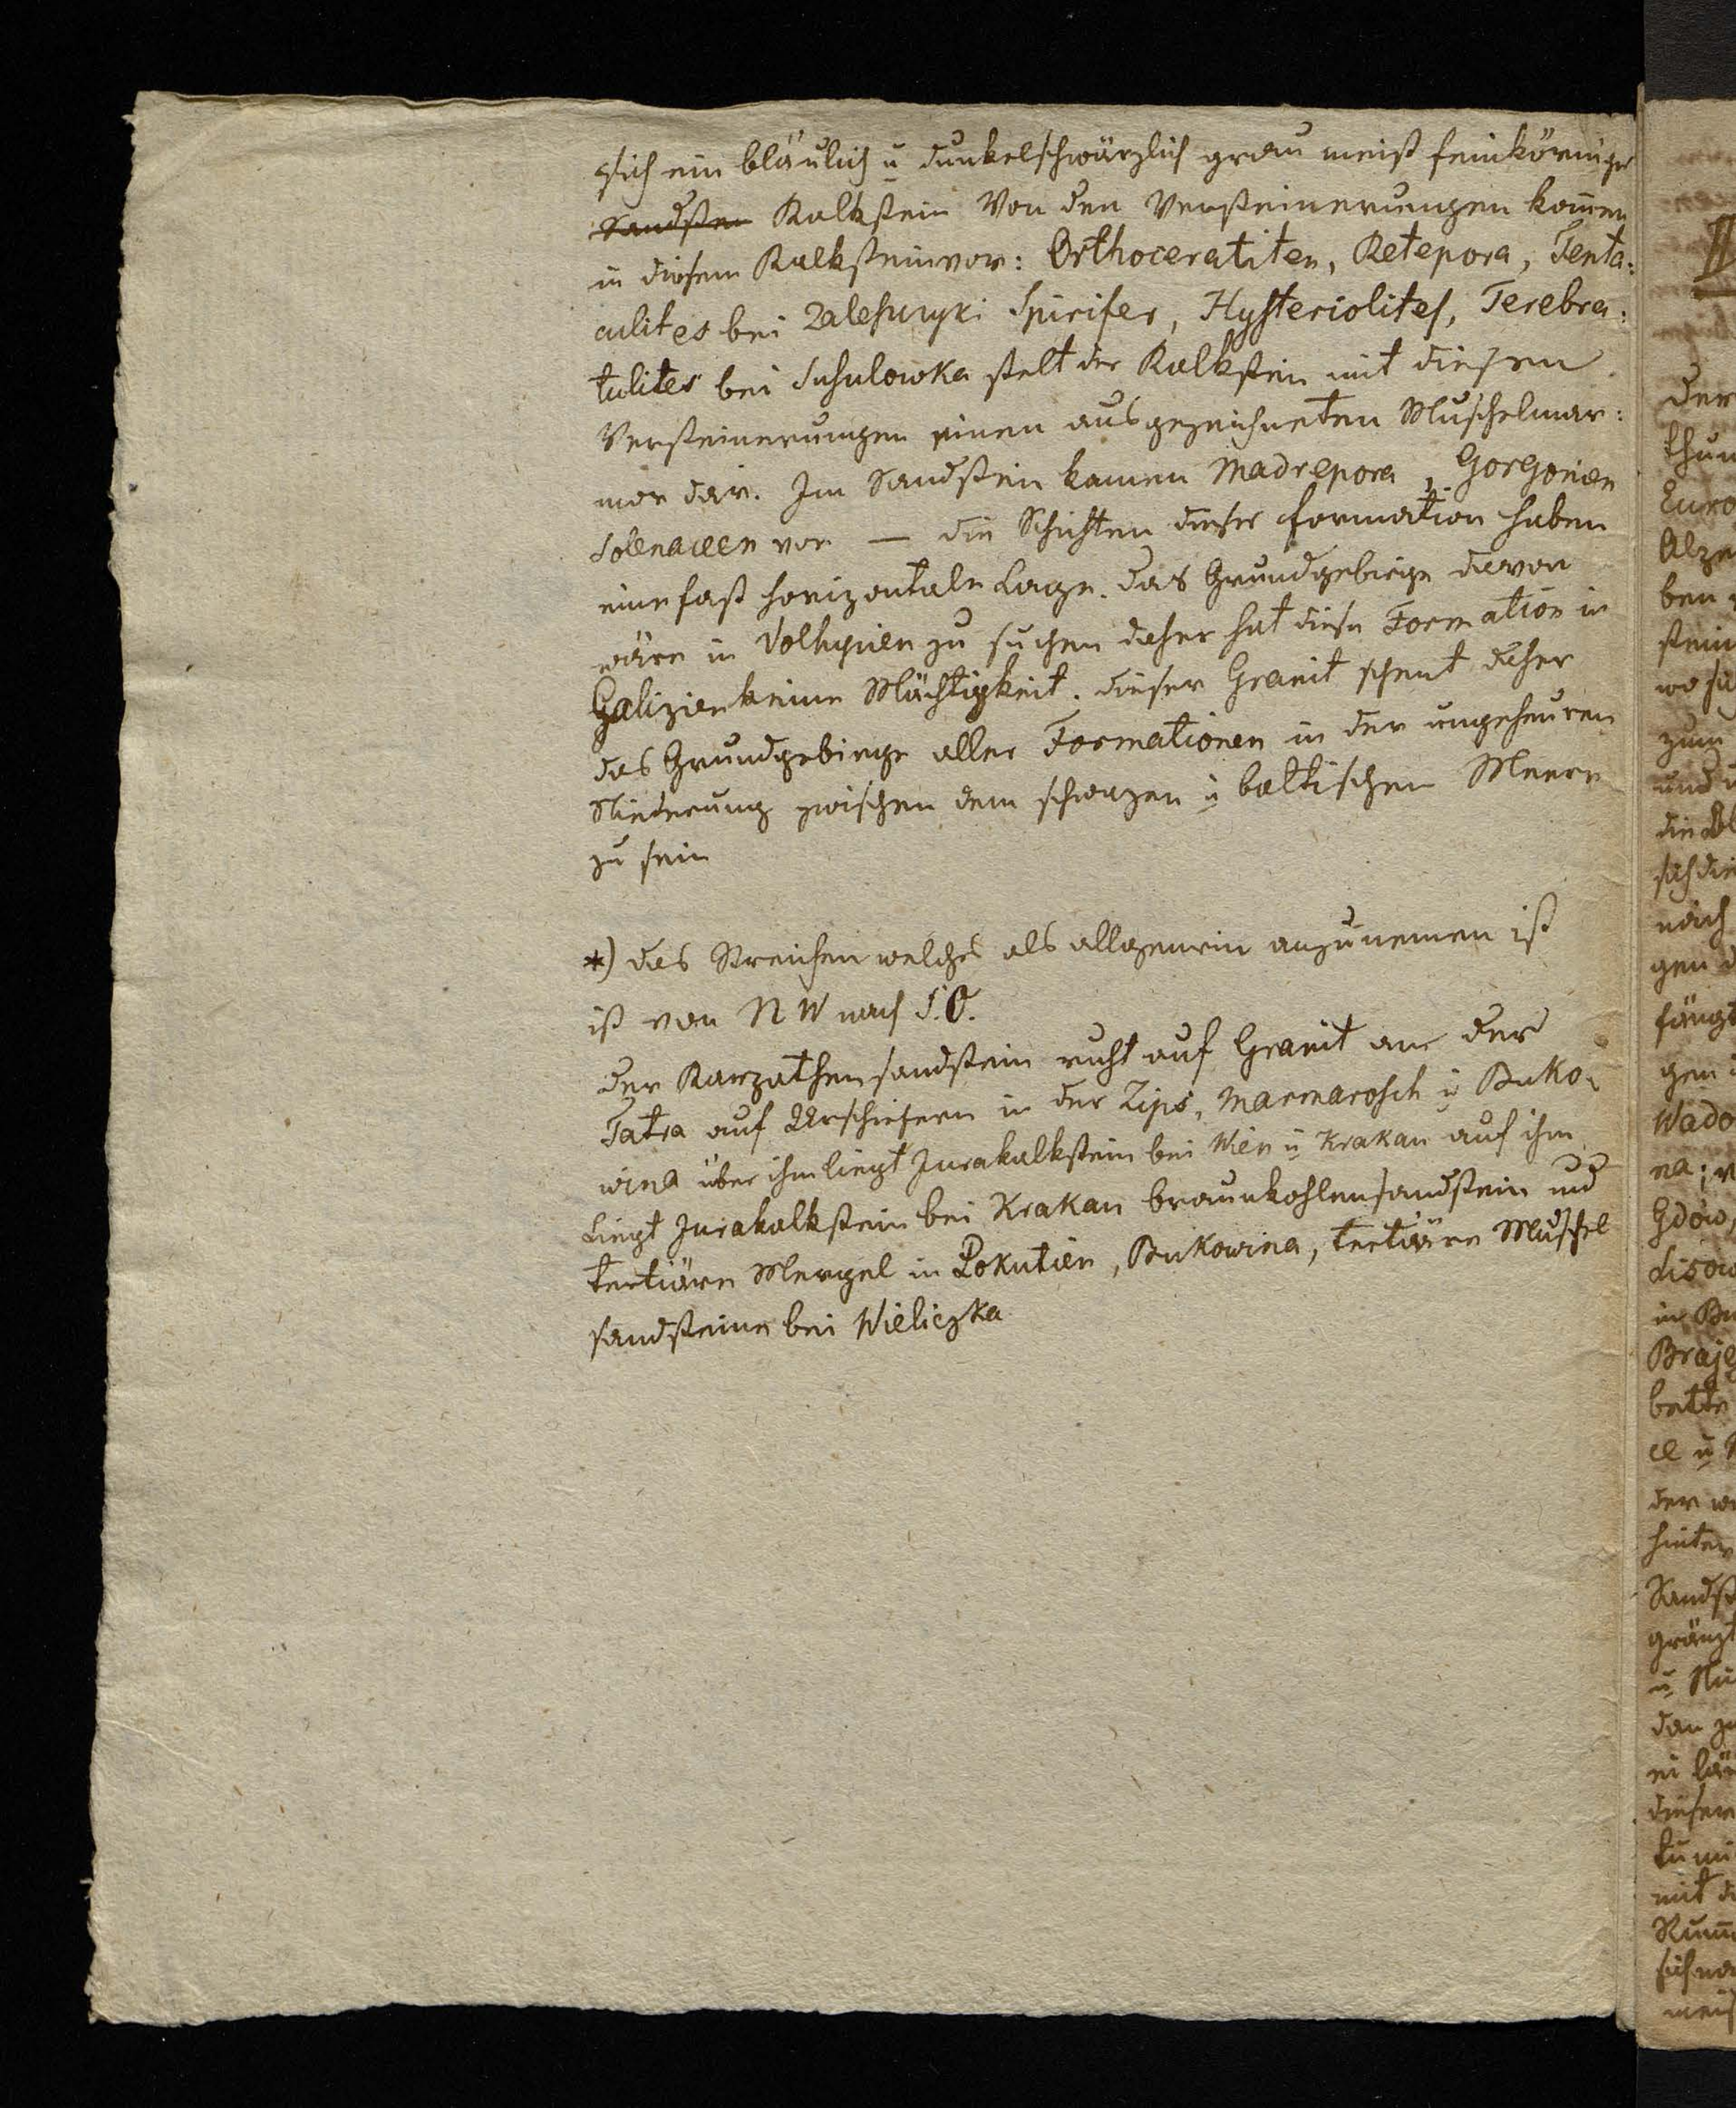 sich ein bläulich u dunkelschwärzlich grau meist feinkörniger
Sandsten Kalkstein Von den Versteinerungen komen
in diesem Kalkstein vor: Orthoceratiten, Retepora, Tenta:
culites bei Zalesczyki Spirifer, Hysteriolites, Terebra:
tulites bei Suhulowka stelt der Kalkstein mit diesen
Versteinerungen einen ausgezeichneten Muschelmar:
mor dar. Im Sandstein kamen Madrepora, Gorgonien
Solenaceen vor — die Schichten dieser formation haben
eine fast horizontale Lage. das Grundgebirge davon
wäre in Volhynien zu suchen daher hat diese Formation in
Galizien keine Mächtigkeit. dieser Granit scheint daher
das Grundgebirge aller Formationen in der ungeheuren
Niederung zwischen dem schwazen u baltischen Meere
zu sein
*) das Streichen welches als allgemein anzunemen ist
ist von NW nach S.O.
der Karpathensandstein ruht auf Granit an der
Tatra auf Urschiefern in der Zips, Marmarosch u Buko:
wina über ihm liegt Jurakalkstein bei Wien u Krakau auf ihm
liegt Jurakalkstein bei Krakau braunkohlensandstein und
tertiäre Mergel in Pokutien, Bukowina, tertiäre Muschel
sandsteine bei Wieliczka
II
der
thun
Euro
Alze
ben
stein
wo
zum
und
die
sich die
nach
gen
fängt
gen
Wado
na;
Gdow,
Lisow
in Bu
Braje
bette
der
hinter
Sandst
gränzt
dan
dieser
mit